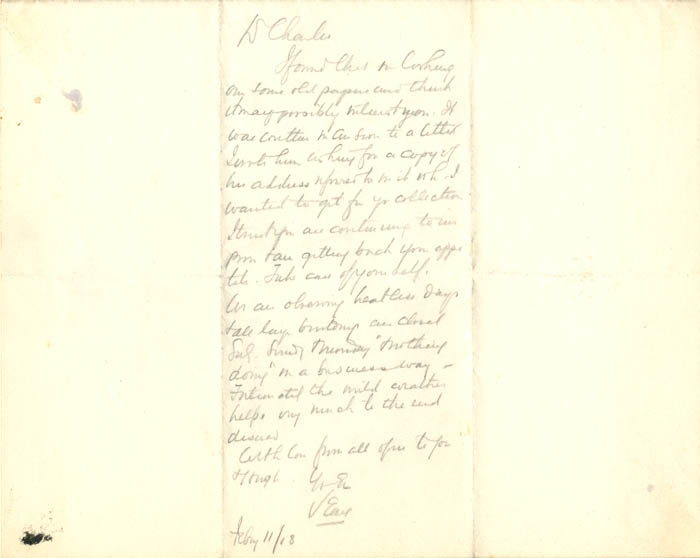 Dr Charles
I found this on looking
over some old papers and think
it may possibly interest you. It
was written in answer to a letter
I wrote him asking for a copy of
his address referred to in it wh. I
wanted to get for yr collection
I trust you are continuing to im
prove & are getting back your appe
tite. Take care of yourself.
We are observing heatless days
& all large buildings are closed
Sat. Sunday & Monday "& nothing
doing" in a business way –
Fortunately the mild weather
helps very much to the end
desired
With love from all of us to you
& Hugh
Feby 11/18